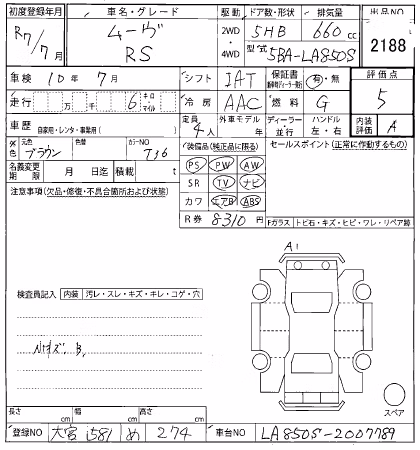 初度登録年月 車名・グレード 駆動 ドア数・形状 排気量 出品NO
R7/7月 ムーヴ RS 2WD・4WD 5HB 660cc 2188
型式 5BA-LA850S
車検 10年7月 シフト IAT 保証書 有・無 評価点
走行 万 千 6 キロ・マイル 冷房 AAC 燃料 G 5
車歴 自家用・レンタ・事業用( ) 定員 4人 外車モデル 年 ディーラー・並行 ハンドル 左・右 内装評価 A
外色 元色 ブラウン 色替 カラーNO T36
名義変更期限 月 日迄 積載 t
装備品(純正品に限る) セールスポイント(正常に作動するもの)
PS PW AW
SR TV ナビ
カワ エアB ABS
R券 8310円
注意事項(欠品・修復・不具合箇所および状態)
Fガラス トビ石・キズ・ヒビ・ワレ・リペア跡
A1
検査員記入 内装 汚レ・スレ・キズ・キレ・コゲ・穴
内キズ. B.
スペア
長さ cm 幅 cm 高さ cm
登録NO 大宮 581 め 274 車台NO LA850S-2007789